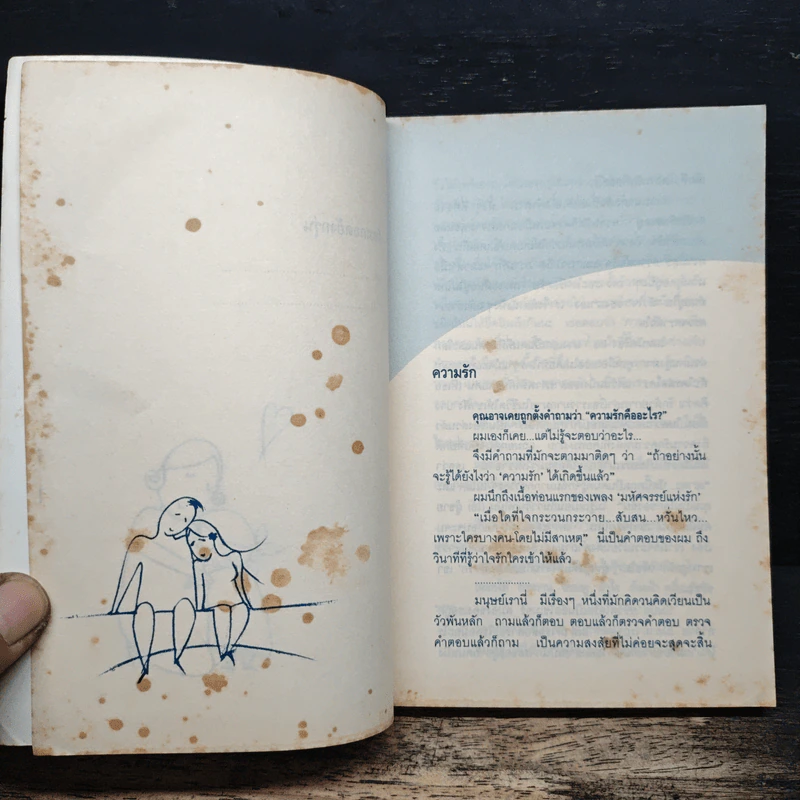 ความรัก
คุณอาจเคยถูกตั้งคำถามว่า “ความรักคืออะไร?”
ผมเองก็เคย...แต่ไม่รู้จะตอบว่าอะไร...
จึงมีคำถามที่มักจะตามมาติดๆ ว่า “ถ้าอย่างนั้น
จะรู้ได้ยังไงว่า ‘ความรัก’ ได้เกิดขึ้นแล้ว”
ผมนึกถึงเนื้อท่อนแรกของเพลง ‘มหัศจรรย์แห่งรัก’
“เมื่อใดที่ใจกระวนกระวาย...สับสน...หวั่นไหว...
เพราะใครบางคน โดยไม่มีสาเหตุ” นี่เป็นคำตอบของผม ถึง
วินาทีที่รู้ว่าใจรักใครเข้าให้แล้ว
....................
มนุษย์เรานี่ มีเรื่องๆ หนึ่งที่มักคิดวนคิดเวียนเป็น
วัวพันหลัก ถามแล้วก็ตอบ ตอบแล้วก็ตรวจคำตอบ ตรวจ
คำตอบแล้วก็ถาม เป็นความสงสัยที่ไม่ค่อยจะสุดจะสิ้น